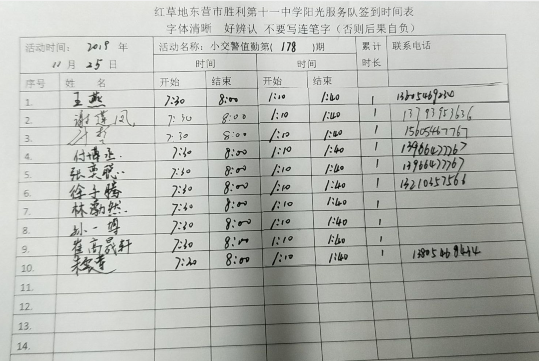 红草地东营市胜利第十一中学阳光服务队签到时间表
字体清晰 好辨认 不要写连笔字（否则后果自负）
活动时间： 2019 年 活动名称：小交警值勤第（178）期 累计时长 联系电话
11 月 25 日 时间 时间
序号 姓 名 开始 结束 开始 结束
1. 王燕 7:30 8:00 1:10 1:40 1
2. 7:30 8:00 1:10 1:40 1
3. 7:30 8:00 1:10 1:40 1 15605467767
4. 付博丞 7:30 8:00 1:10 1:40 1 13966477767
5. 张奕聪 7:30 8:00 1:10 1:40 1 13966477767
6. 徐子腾 7:30 8:00 1:10 1:40 1 13210357566
7. 林 然 7:30 8:00 1:10 1:40 1
8. 孙一博 7:30 8:00 1:10 1:40 1
9. 崔高晟轩 7:30 8:00 1:10 1:40 1
10. 7:30 8:00 1:10 1:40 1
11.
12.
13.
14.